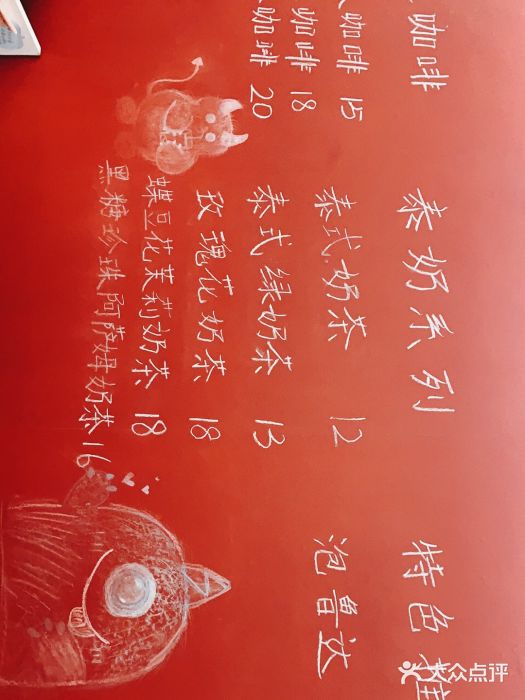 咖啡
咖啡 15
咖啡 18
咖啡 20
泰奶系列
泰式奶茶 12
泰式绿奶茶 13
玫瑰花奶茶 18
蝶豆花茉莉奶茶 18
黑糖珍珠阿萨姆奶茶 16
特色
泡鲁达
大众点评